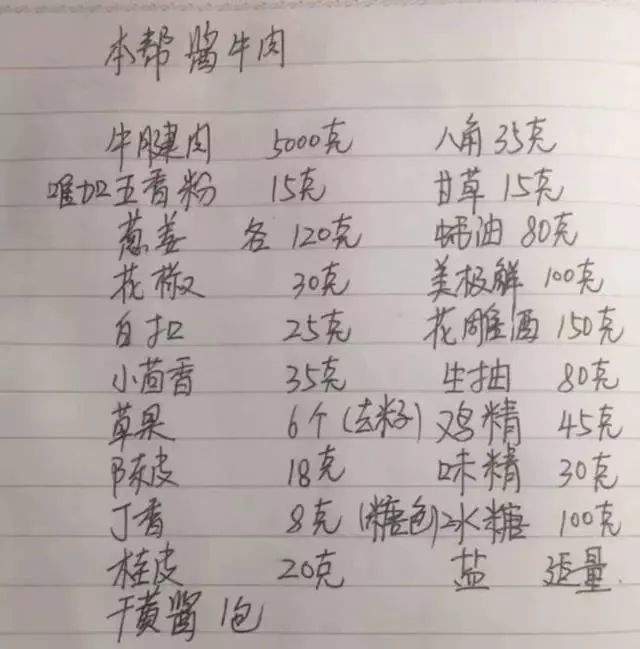 本帮酱牛肉
牛腱肉 5000克 八角 35克
唯加五香粉 15克 甘草 15克
葱姜 各 120克 蚝油 80克
花椒 30克 美极鲜 100克
白扣 25克 花雕酒 150克
小茴香 35克 生抽 80克
草果 6个(去籽) 鸡精 45克
陈皮 18克 味精 30克
丁香 8克 (糖色)冰糖 100克
桂皮 20克 盐 适量.
干黄酱 1包